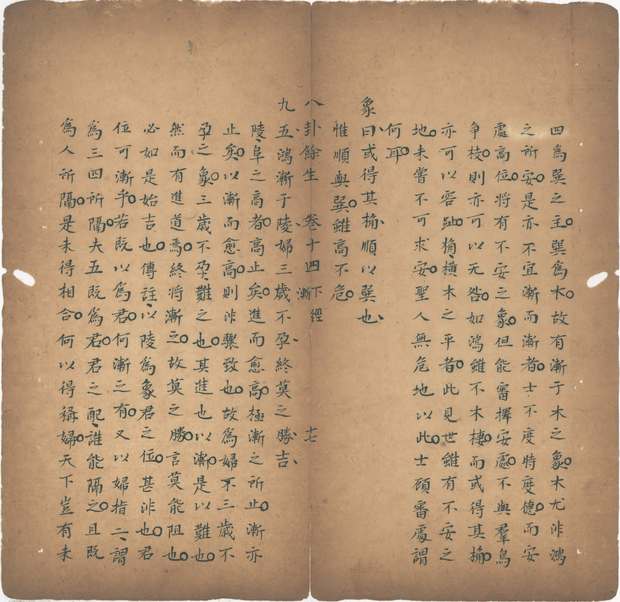 四為巽之主巽為木故有漸于木之象木尤非鴻
之所安是亦不宜漸而漸者士不度時度德而安
處高位將有不安之象但能審擇安處不與羣鳥
爭枝則亦可以无咎如鴻雖不木棲而或得其桷
亦可以容趾桷橫木之平者此見世雖有不安之
地未嘗不可求安聖人無危地以此士頎審處謂
何耳
象曰或得其桷順以巽也
惟順與巽雖高不危
八卦餘生 卷十四 漸 下經 十七
九五鴻漸于陵婦三歲不孕終莫之勝吉
陵阜之高者高止矣進而愈高極漸之所止漸亦
止矣以漸而愈高則非驟致也故為婦不三歲不
孕之象三歲不孕難之也其進也以漸是以難也
然而有進道焉終將漸之故莫之勝言莫能阻也
必如是始吉也傳註以陵為象君之位甚非也君
位可漸乎若既以為君何漸之有又以婦指二謂
為三四所隔夫五既為君君之配誰能隔之且既
為人所隔是未得相合何以得稱婦天下豈有未